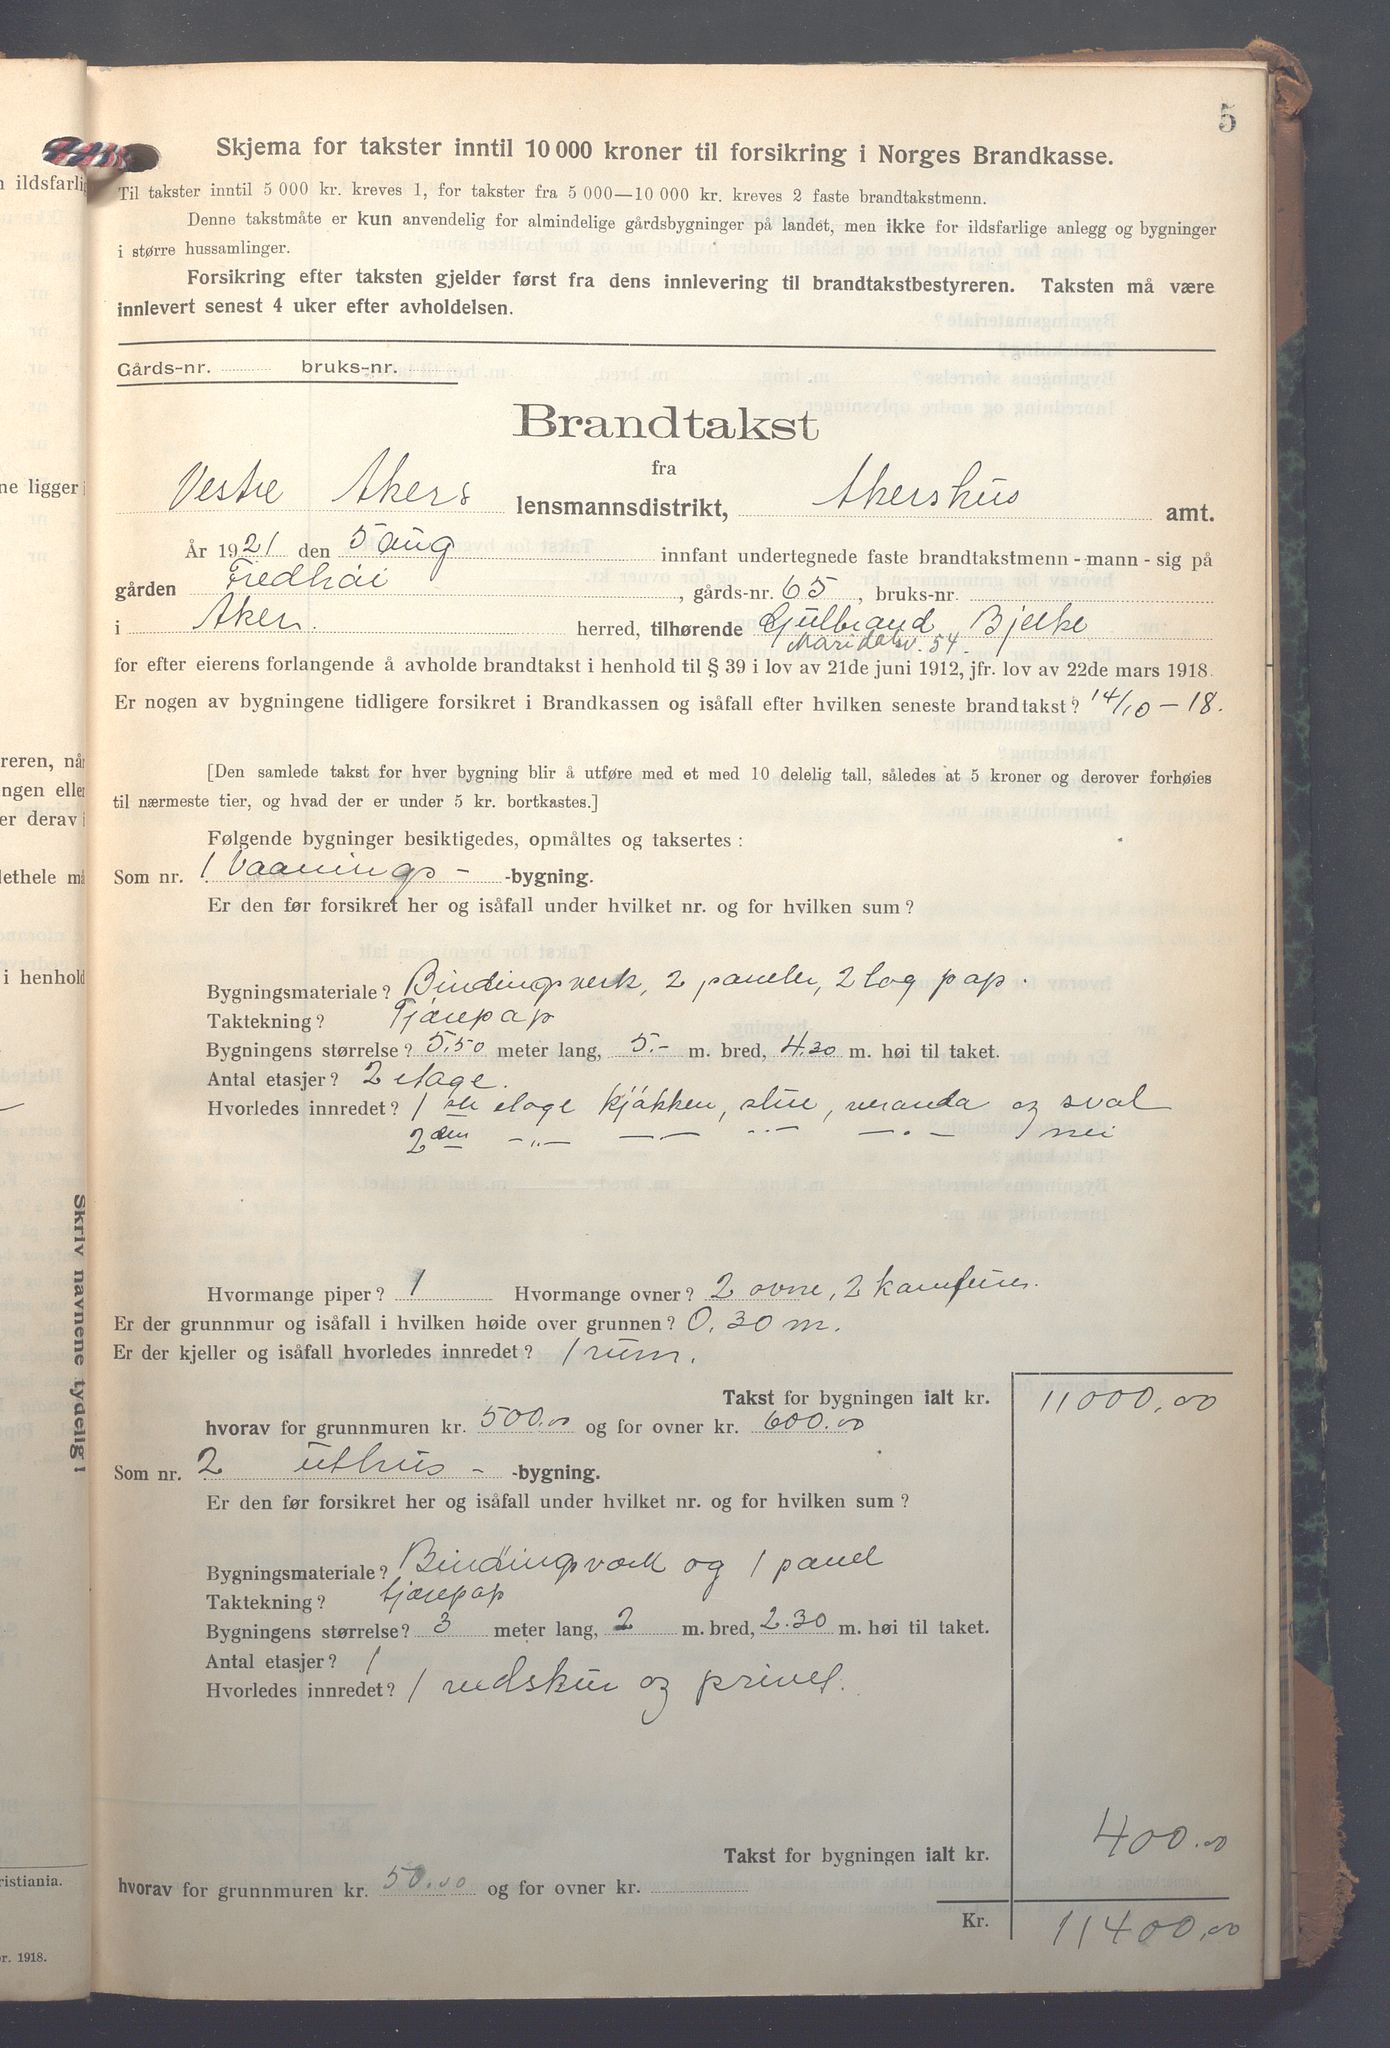 5
Skjema for takster inntil 10 000 kroner til forsikring i Norges Brandkasse.
Til takster inntil 5 000 kr. kreves 1, for takster fra 5 000—10 000 kr. kreves 2 faste brandtakstmenn.
Denne takstmåte er kun anvendelig for almindelige gårdsbygninger på landet, men ikke for ildsfarlige anlegg og bygninger
i større hussamlinger.
Forsikring efter taksten gjelder først fra dens innlevering til brandtakstbestyreren. Taksten må være
innlevert senest 4 uker efter avholdelsen.
Gårds-nr. bruks-nr.
Brandtakst
fra
Vestre Akers lensmannsdistrikt, Akershus amt.
År 1921 den 5 aug innfant undertegnede faste brandtakstmenn - mann - sig på
gården Fredhöi, gårds-nr. 65, bruks-nr.
i Aker herred, tilhørende Gulbrand Bjelke
Maridalsv. 54.
for efter eierens forlangende å avholde brandtakst i henhold til § 39 i lov av 21de juni 1912, jfr. lov av 22de mars 1918.
Er nogen av bygningene tidligere forsikret i Brandkassen og isåfall efter hvilken seneste brandtakst? 14/10 - 18.
[Den samlede takst for hver bygning blir å utføre med et med 10 delelig tall, således at 5 kroner og derover forhøies
til nærmeste tier, og hvad der er under 5 kr. bortkastes.]
Følgende bygninger besiktigedes, opmåltes og taksertes:
Som nr. 1 Vaanings- -bygning.
Er den før forsikret her og isåfall under hvilket nr. og for hvilken sum?
Bygningsmateriale? Bindingsverk, 2 paneler, 2 lag pap.
Taktekning? Tjærepap
Bygningens størrelse? 5,50 meter lang, 5.- m. bred, 4.30 m. høi til taket.
Antal etasjer? 2 etage.
Hvorledes innredet? 1 ste etage kjökken, stue, veranda og sval
2 den -„- -„- -„- -„- nei
Hvormange piper? 1 Hvormange ovner? 2 ovne, 2 kamfurer.
Er der grunnmur og isåfall i hvilken høide over grunnen? 0,30 m.
Er der kjeller og isåfall hvorledes innredet? 1 rum.
Takst for bygningen ialt kr. 11000,00
hvorav for grunnmuren kr. 500.00 og for ovner kr. 600.00
Som nr. 2 uthus- -bygning.
Er den før forsikret her og isåfall under hvilket nr. og for hvilken sum?
Bygningsmateriale? Bindingsverk og 1 panel
Taktekning? tjærepap
Bygningens størrelse? 3 meter lang, 2 m. bred, 2.30 m. høi til taket.
Antal etasjer? 1
Hvorledes innredet? 1 vedskur og privet.
Takst for bygningen ialt kr. 400.00
hvorav for grunnmuren kr. 50.00 og for ovner kr.
Kr. 11400,00
Skriv navnene tydelig!
ildsfarlig
ne ligger i
reren, når
ngen eller
er derav i
i henhold
ristiania.
r. 1918.